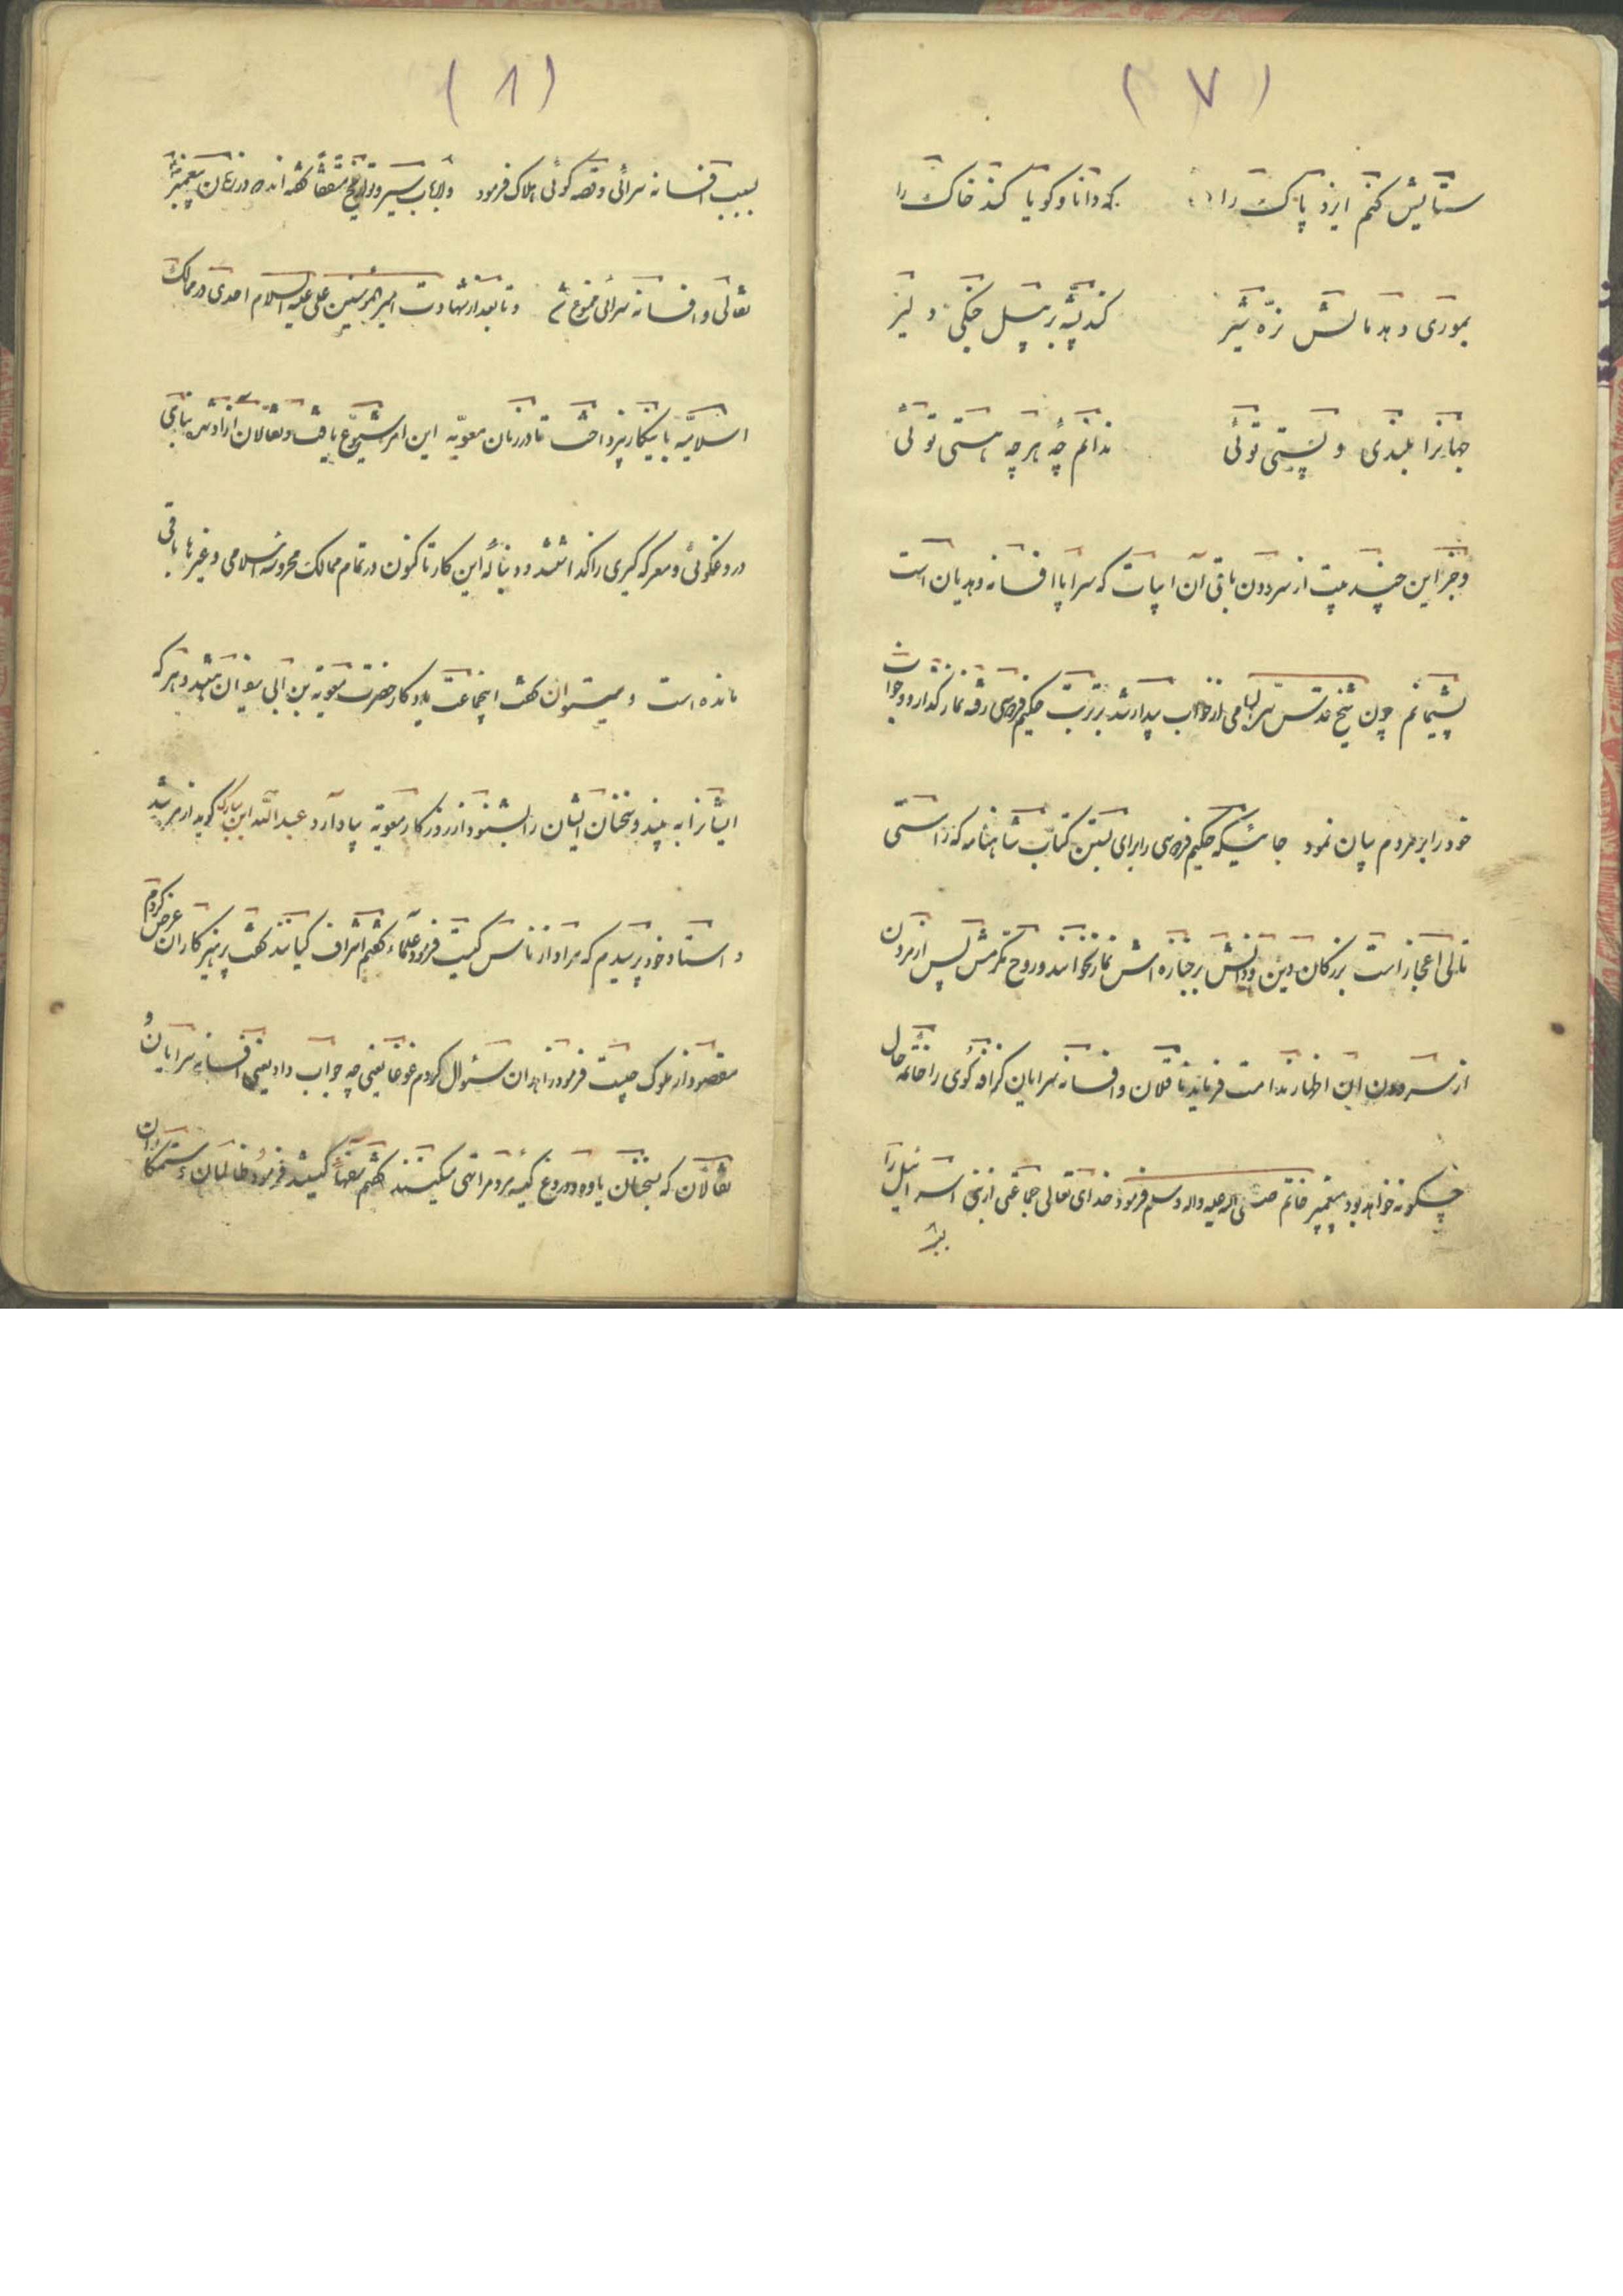 (۷)
ستایش کنم ایزد پاک را که دانا و کویا کند خاک را
بموری دهد مالش نرّه شیر کند پشه بر پیل جنکی دلیر
جهانرا بلندی و پستی توئی ندانم چهٔ هر چه هستی توئی
و جز این چند بیت از سرودن باقی آن ابیات که سراپا افسانه و هذیان است
پشیمانم چون شیخ قدّس سرّه السامی از خواب بیدار شد بر تربت حکیم فردوسی رفته نماز گذارد و خواب
خود را بر مردم بیان نمود جائیکه حکیم فردوسی را برای بستن کتاب شاهنامه که براستی
تالی اعجاز است بزرکان دین و دانش بر جنازه اش نماز نخوانند و روح مکرمش پس از مردن
از سرودن این اظهار ندامت فرماید نا نقلان و افسانه سرایان کزافه کوی را خاتمهٔ حال
چکونه خواهد بود پیغمبر خاتم صلی الله علیه واله وسلم فرمود خدای تعالی جماعتی از بنی اسرائیل را
(۸)
بسبب افسانه سرائی و قصه کوئی هلاک فرمود و ارباب سیر و تواریخ متفقاً کفته اند در زمان پیغمبر
نقالی و افسانه سرائی ممنوع و تا بعد از شهادت امیر المؤمنین علی علیه السلام احدی در ممالک
اسلامیّه باینکار نپرداخت تا در زمان معویّه این امر شیوع یافت و نقالان آزادند بنای
دروغکوئی و معرکه کیری را کذاشتند و دنبالهٔ این کار تا کنون در تمام ممالک محروسهٔ اسلامی و غیرها باقی
مانده است و میتوان کفت اینجماعت یادکار حضرت معویة بن ابی سفیان هستید و هر که
ایشانرا به بیند و سخنان ایشان را بشنود از روزکار معویّه بیاد آرد عبدالله ابن مبارک کوید از مرشد
و استاد خود پرسیدم که مراد از ناس کیست فرمود علماء کفتم اشراف کیانند کفت پرهیزکاران عرض کردم
مقصود از ملوک چیست فرمود زاهدان سئوال کردم غوغا یعنی چه جواب داد یعنی افسانه سرایان و
نقالان که بسخنان یاوه و دروغ کیسهٔ مردم را تهی میکنند کفتم سفهاء کیستند فرمود ظالمان و ستمکاران